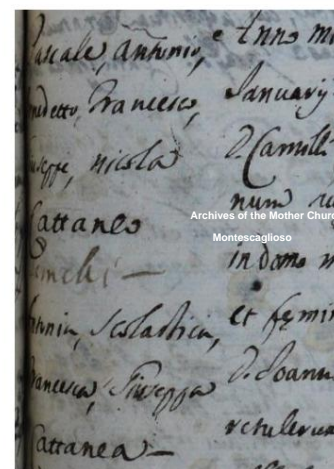 Pascale, Antonio, e
nedetto, Francesco,
useppe, nicola
Cattaneo
Gemelli —
ntonia, Scolastica,
rancesca, Giuseppa
Cattanea —
Anno
January
D. Camill
num
Archives of the Mother Churc
Montescaglioso
in domo
et femin
D. Joann
retulerun